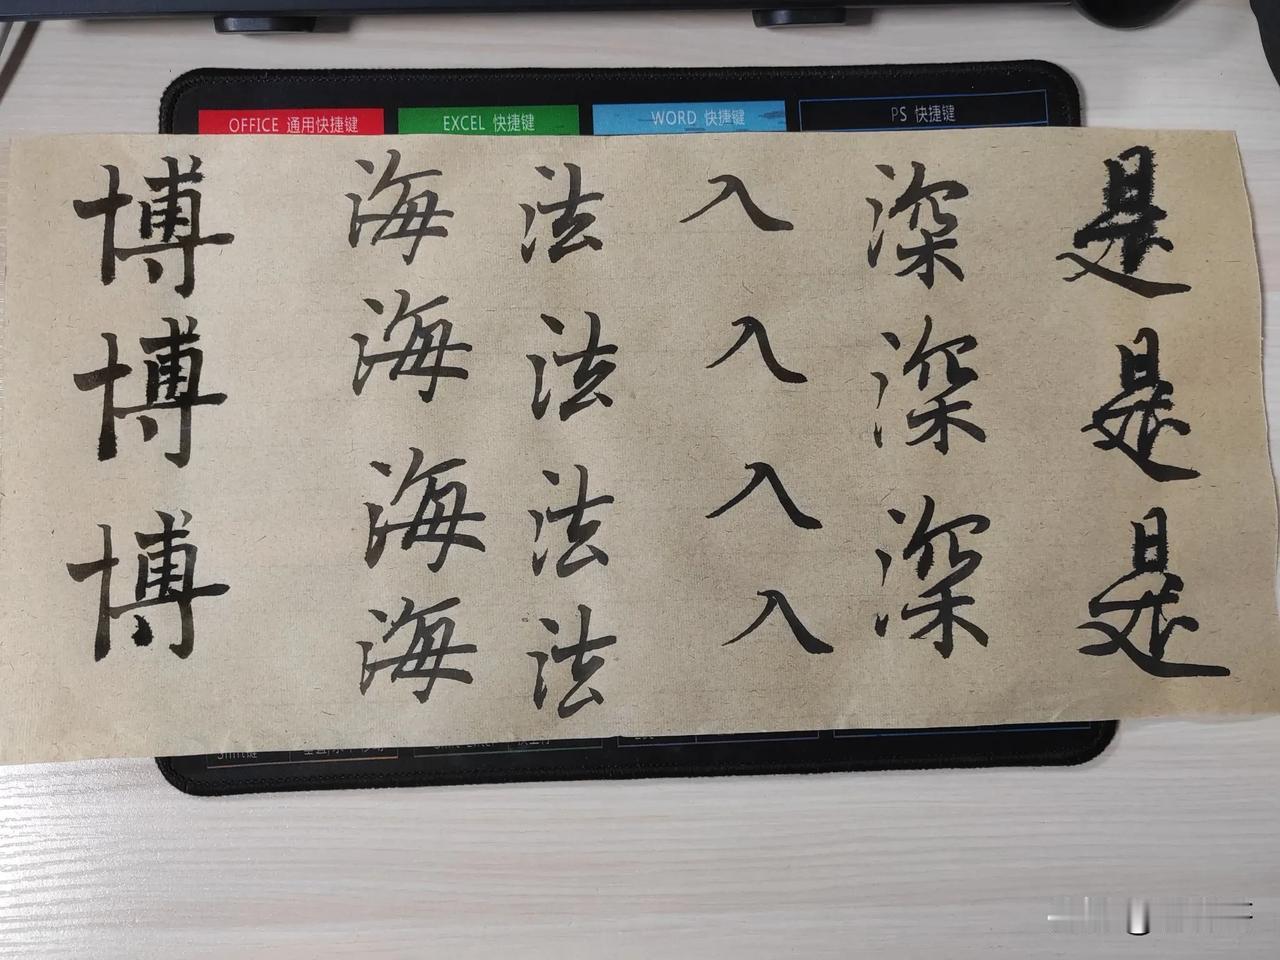 OFFICE 通用快捷键
EXCEL 快捷键
WORD 快捷键
PS 快捷键
是是是
深深深
入入入入
法法法法
海海海海
博博博